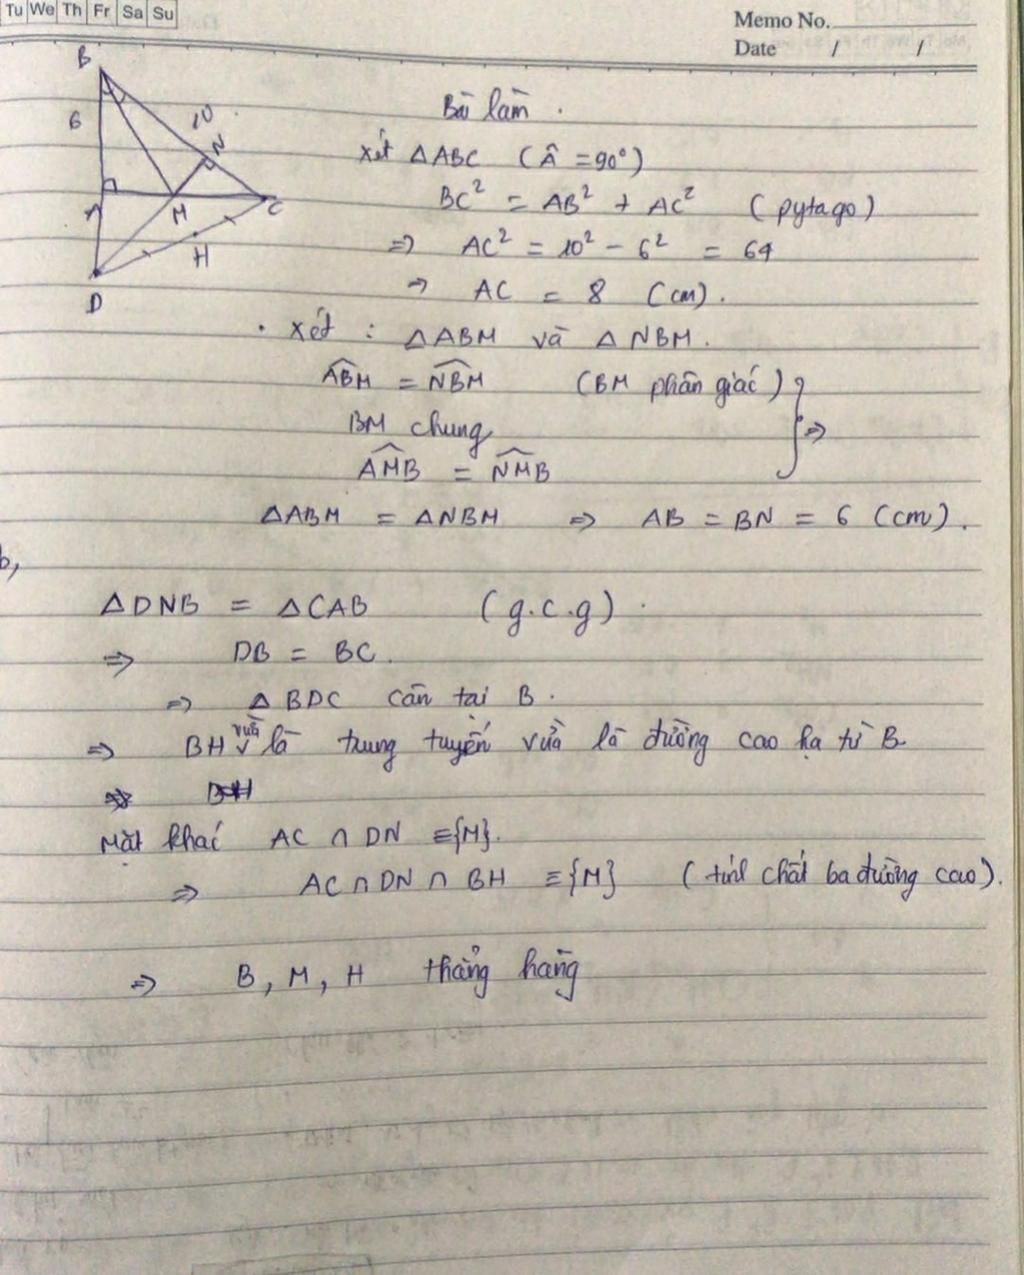 Tu We Th Fr Sa Su
Memo No.
Date / /
B
6
10
N
A
M
C
H
D
Bài làm.
Xét ΔABC (Â = 90°)
BC² = AB² + AC² (pytago)
=> AC² = 10² - 6² = 64
=> AC = 8 (cm).
• Xét : ΔABM và ΔNBM.
\widehat{ABM} = \widehat{NBM} (BM phân giác) } =>
BM chung
\widehat{AMB} = \widehat{NMB}
ΔABM = ΔNBM => AB = BN = 6 (cm).
b,
ΔDNB = ΔCAB (g.c.g).
=> DB = BC.
=> ΔBDC cân tại B.
=> BH vừa là trung tuyến vừa là đường cao hạ từ B
Mặt khác AC ∩ DN ≡ {M}.
=> AC ∩ DN ∩ BH ≡ {M} (tính chất ba đường cao).
=> B, M, H thẳng hàng